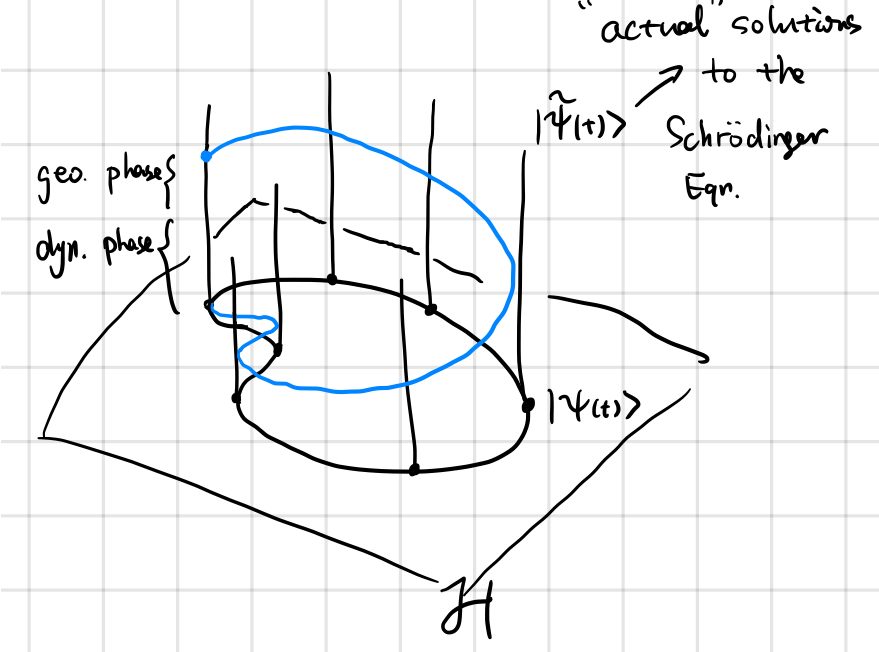 "actual" solutions
to the
|Ψ̃(t)>
Schrödinger
Eqn.
geo. phase
dyn. phase
|Ψ(t)>
H